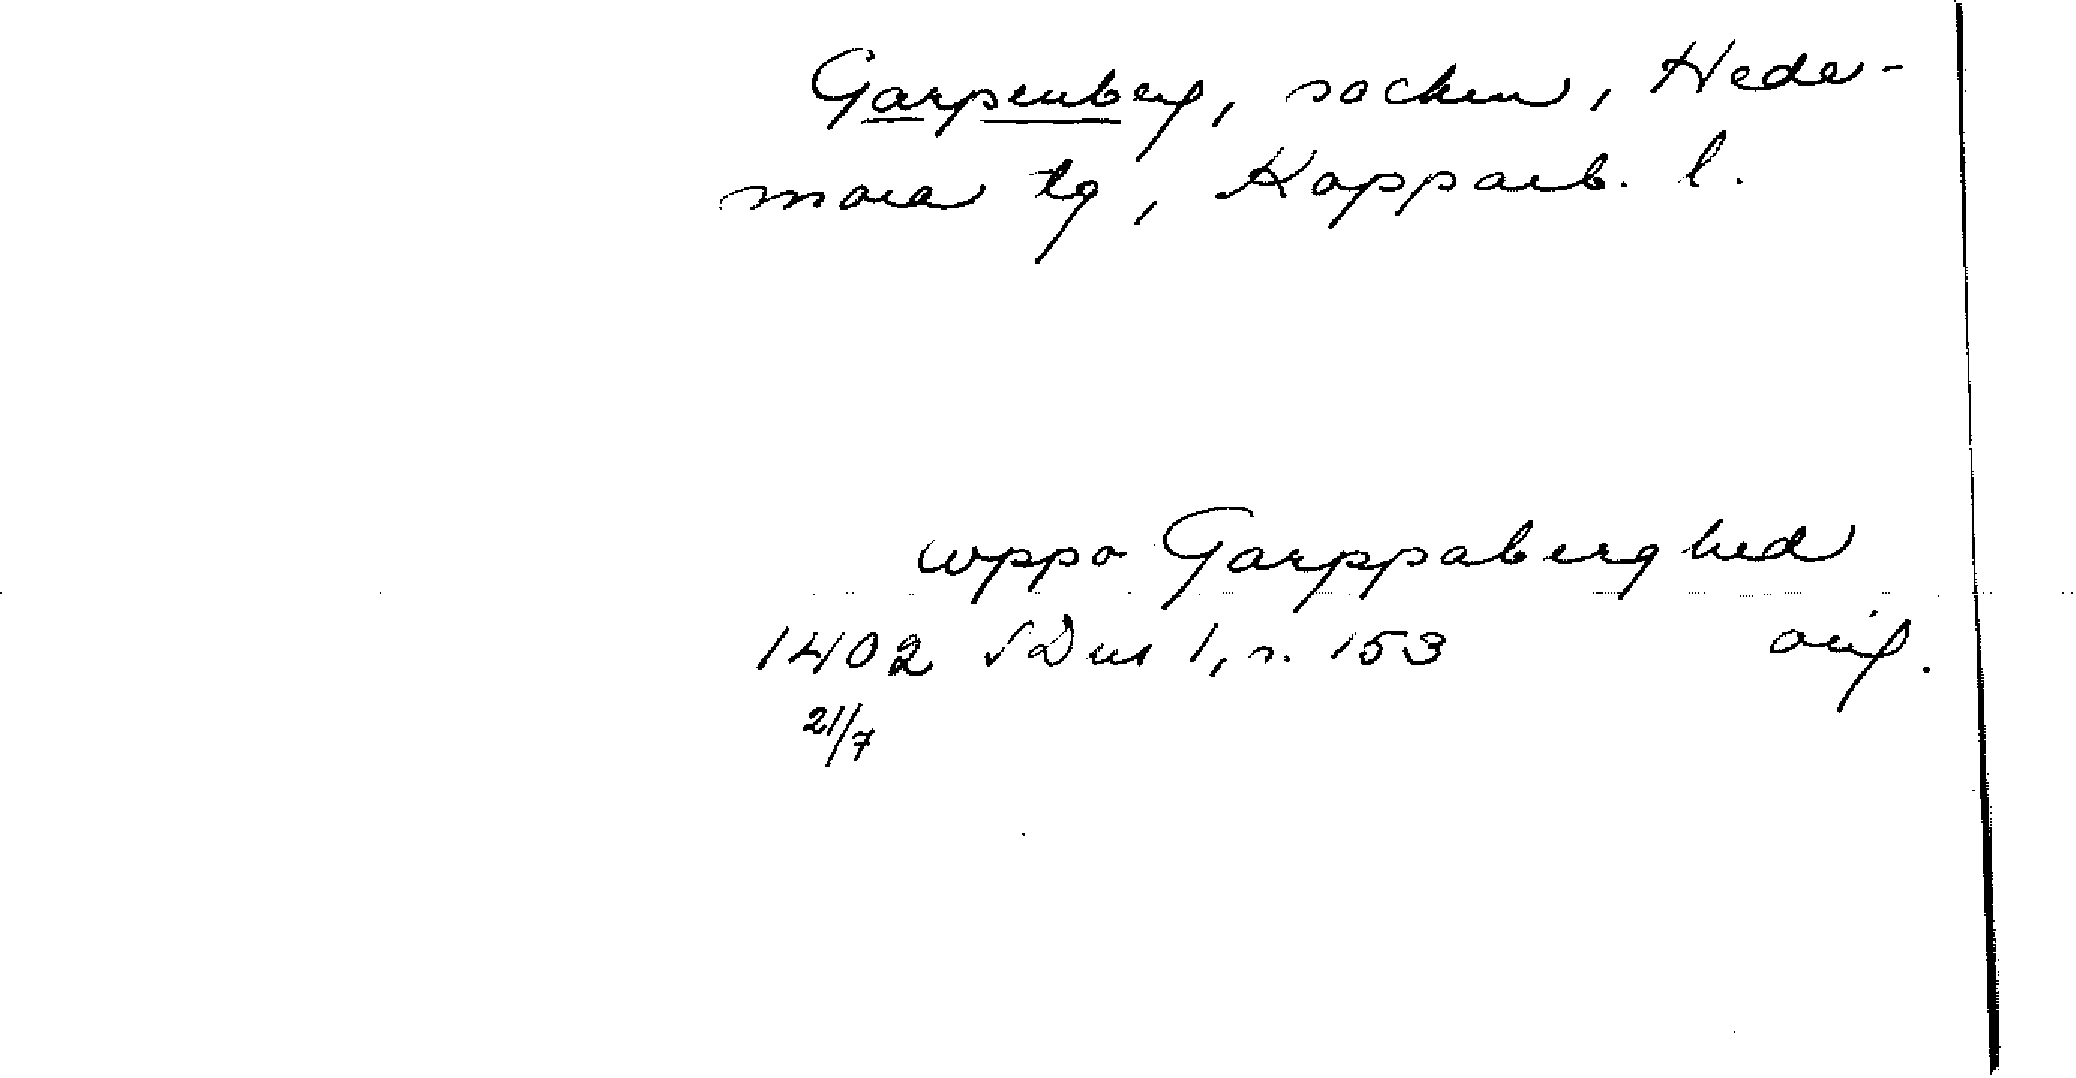 Garpenberg, socken, Hede-
mora tg, Kopparb. l.
wppa Garppaberghed
1402 SDns 1, s. 153 orig.
21/7